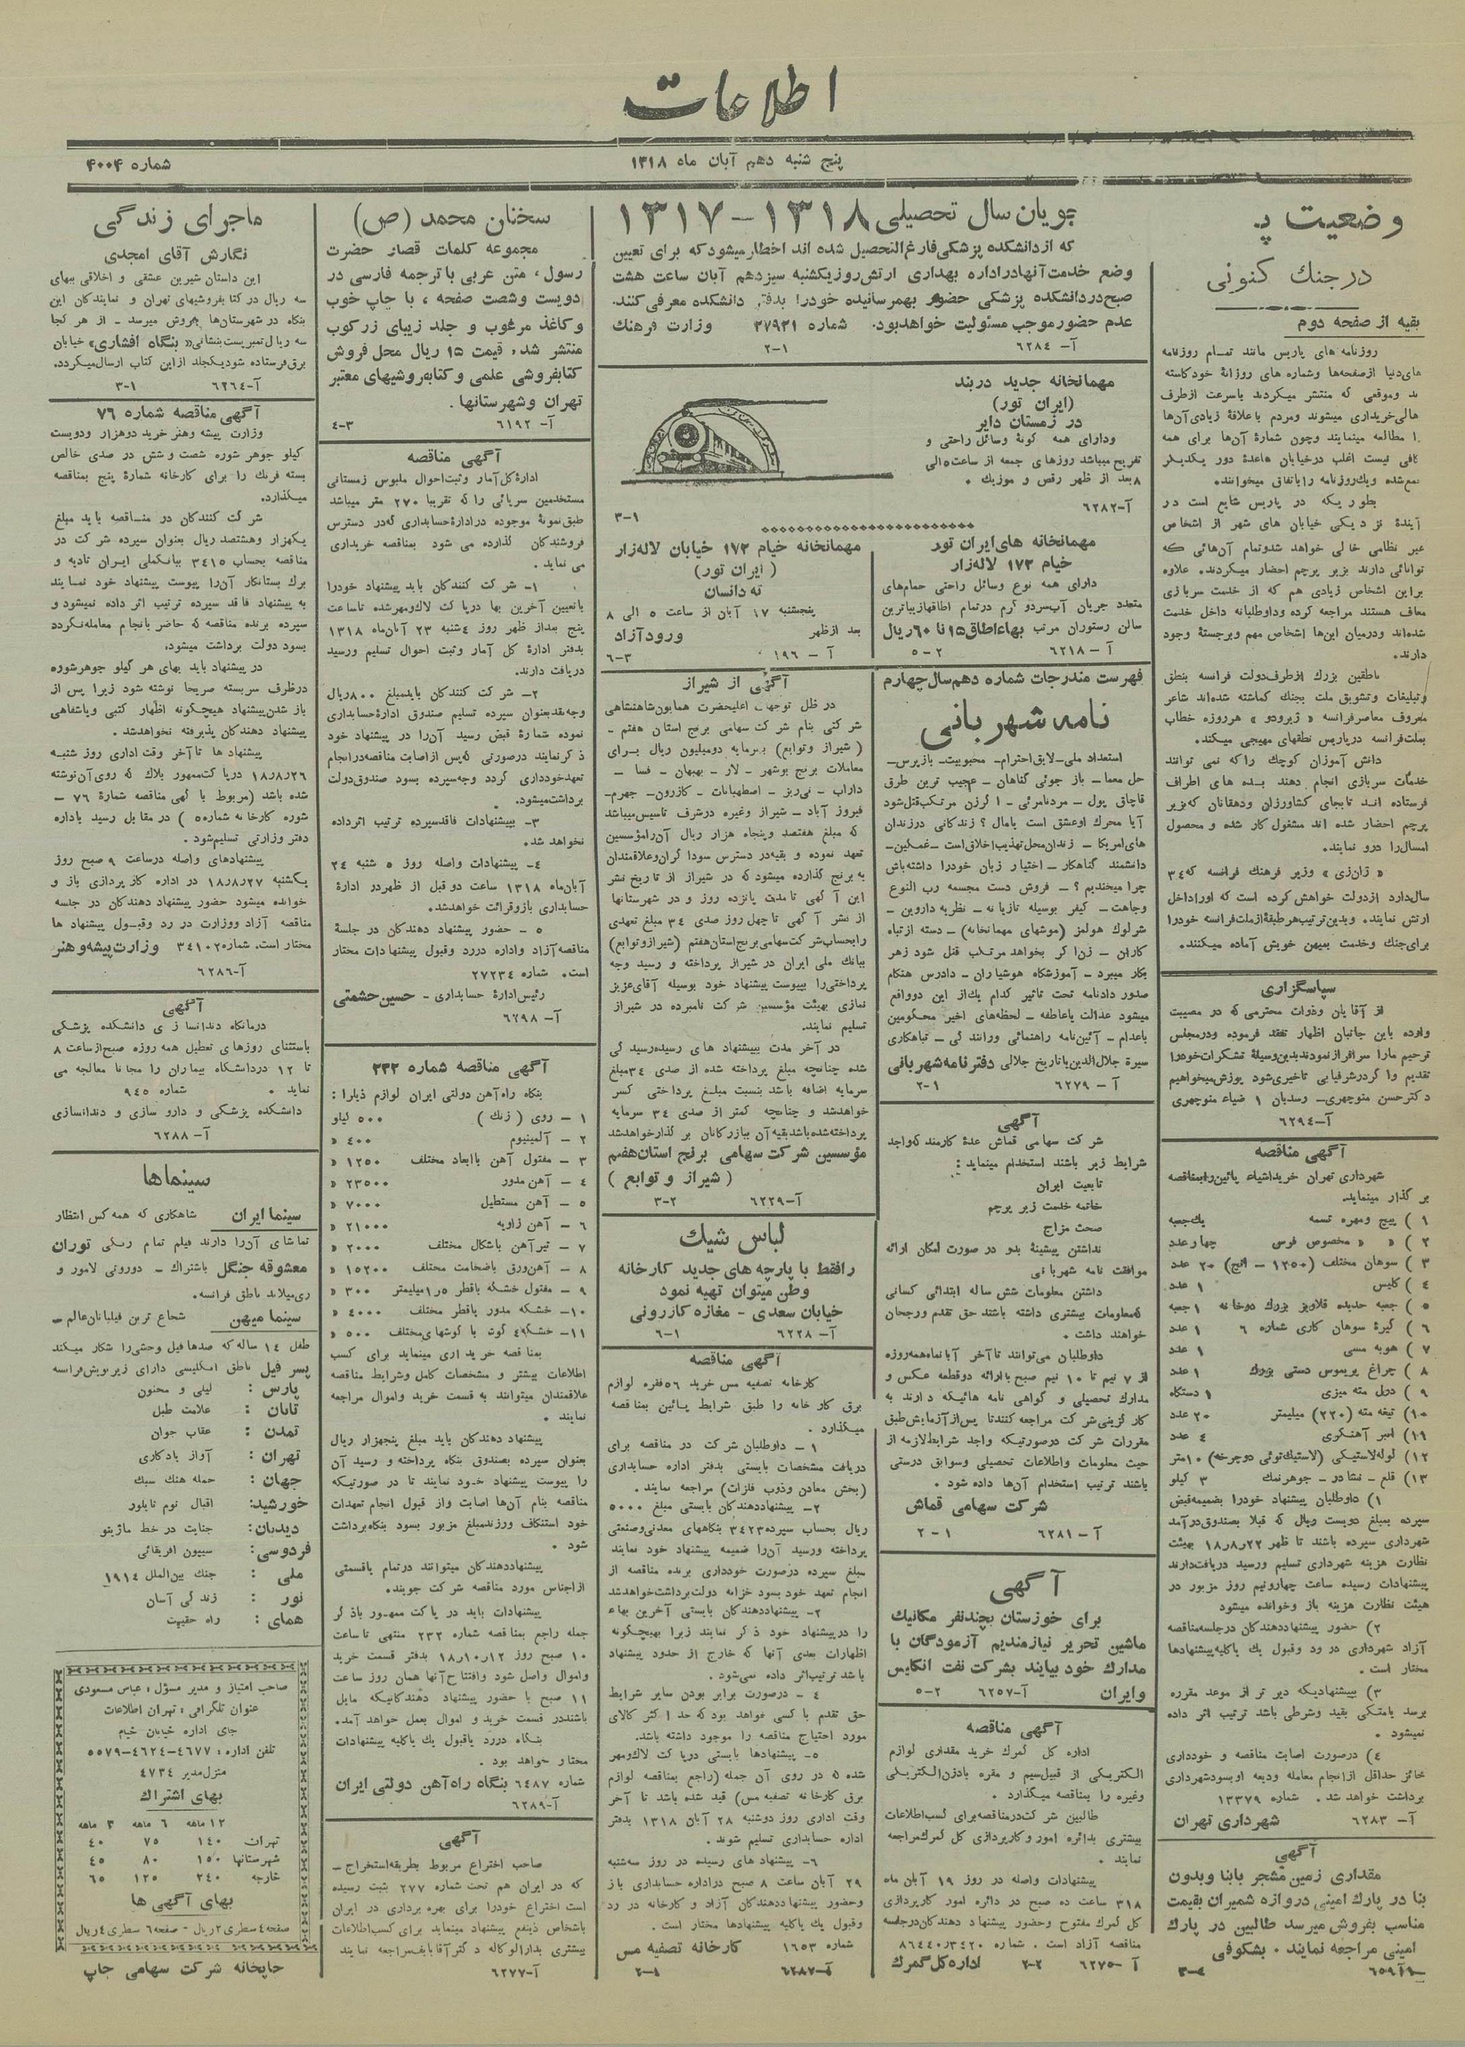 اطلاعات
پنج شنبه دهم آبان ماه ۱۳۱۸
شماره ۴۰۰۴
وضعیت پ
در جنك كنونی
بقیه از صفحه دوم
روزنامه های پاریس مانند تمام روزنامه
های دنیا از صفحه‌ها و شماره های روزانهٔ خود کاسته
ند و موقعی که منتشر میگردید باسرعت از طرف
هالی خریداری میشوند و مردم با علاقهٔ زیادی آن‌ها
را مطالعه مینمایند و چون شمارهٔ آن‌ها برای همه
کافی نیست اغلب در خیابان ها عدهٔ دور یکدیگر
جمع شده و یك روزنامه را باتفاق میخوانند.
بطوریکه در پاریس شایع است در
آیندهٔ نزدیکی خیابان های شهر از اشخاص
غیر نظامی خالی خواهد شد و تمام آن‌هائی که
توانائی دارند بزیر پرچم احضار میگردند. علاوه
براین اشخاص زیادی هم که از خدمت سربازی
معاف هستند مراجعه کرده و داوطلبانه داخل خدمت
شده‌اند و درمیان این‌ها اشخاص مهم و برجستهٔ وجود
دارند.
ناطقین بزرك از طرف دولت فرانسه بنطق
و تبلیغات و تشویق ملت بجنك گماشته شده‌اند شاعر
معروف معاصر فرانسه « ژیرودو » هرروزه خطاب
بملت فرانسه در پاریس نطقهای مهیجی میکند.
دانش آموزان کوچك را که نمی توانند
خدمات سربازی انجام دهند بده های اطراف
فرستاده اند تا بجای کشاورزان و دهقانان که بزیر
پرچم احضار شده اند مشغول کار شده و محصول
امسال را درو نمایند.
« ژان‌زی » وزیر فرهنك فرانسه که ۳۴
سال دارد از دولت خواهش کرده است که او را داخل
ارتش نمایند. و بدین ترتیب هر طبقه از ملت فرانسه خود را
برای جنك و خدمت بمیهن خویش آماده میکنند.
سپاسگزاری
از آقایان و ذوات محترمی که در مصیبت
وارده باین جانبان اظهار تفقد فرموده و در مجلس
ترحیم ما را سرافراز نمودند بدین وسیلهٔ تشکرات خود را
تقدیم و اگر در شرفیابی تاخیری شود پوزش میخواهیم
دکتر حسن منوچهری - رسدبان ۱ ضیاء منوچهری
آ-۶۲۹۴
آگهی مناقصه
شهرداری تهران خرید اشیاء پائین را بمناقصه
برگذار مینماید.
۱ ) پیچ و مهره تسمه یك جعبه
۲ ) « « مخصوص فرس چهار عدد
۳ ) سوهان مختلف (۱۲۵۰ - انج) ۲۰ عدد
۴ ) کلیس ۱ عدد
۵ ) جعبه حدیده قلاویز بزرك دوخانه ۱ جعبه
۶ ) گیرهٔ سوهان کاری شماره ۶ ۱ عدد
۷ ) هویه مسی ۱ عدد
۸ ) چراغ پریموس دستی بزرك ۱ عدد
۹ ) دریل مته میزی ۱ دستگاه
۱۰) تیغه مته (۲۲۰) میلیمتر ۲۰ عدد
۱۱) انبر آهنگری ۴ عدد
۱۲) لوله لاستیکی (لاستیك توئی دوچرخه) ۱۰ متر
۱۳) قلع - نشادر - جوهر نمك ۳ کیلو
۱) داوطلبان پیشنهاد خود را بضمیمه قبض
سپرده بمبلغ دویست ریال که قبلا بصندوق درآمد
شهرداری سپرده باشند تا ظهر ۱۸ر۸ر۲۲ بهیئت
نظارت هزینه شهرداری تسلیم و رسید دریافت دارند
پیشنهادات رسیده ساعت چهار و نیم روز مزبور در
هیئت نظارت هزینه باز و خوانده میشود
۲) حضور پیشنهاد دهندگان در جلسه مناقصه
آزاد شهرداری در رد و قبول یك یا کلیه پیشنهادها
مختار است .
۳) پیشنهادیکه دیر تر از موعد مقرره
برسد یا متکی بقید و شرطی باشد ترتیب اثر داده
نمیشود .
۴) در صورت اصابت مناقصه و خودداری
حائز حداقل از انجام معامله ودیعه او بسود شهرداری
برداشت خواهد شد . شماره ۱۳۳۷۹
آ- ۶۲۸۳ شهرداری تهران
آگهی
مقداری زمین مشجر با بنا و بدون
بنا در پارك امینی دروازه شمیران بقیمت
مناسب بفروش میرسد طالبین در پارك
امینی مراجعه نمایند . بشکوفی
جویان سال تحصیلی ۱۳۱۸-۱۳۱۷
که از دانشکده پزشکی فارغ التحصیل شده اند اخطار میشود که برای تعیین
وضع خدمت آنها در اداره بهداری ارتش روز یکشنبه سیزدهم آبان ساعت هشت
صبح در دانشکده پزشکی حضور بهم رسانیده خود را بدفتر دانشکده معرفی کنند.
عدم حضور موجب مسئولیت خواهد بود. شماره ۳۷۹۳۱ وزارت فرهنك
آ- ۶۲۸۴ ۲-۱
مهمانخانه جدید دربند
(ایران تور)
در زمستان دایر
و دارای همه گونه وسائل راحتی و
تفریح میباشد روزهای جمعه از ساعت ۵ الی
۸ بعد از ظهر رقص و موزیك .
آ-۶۲۸۲ ۳-۱
مهمانخانه های ایران تور
خیام ۱۷۲ لاله‌زار
دارای همه نوع وسائل راحتی حمام‌های
متعدد جریان آب سرد و گرم در تمام اطاقها زیباترین
سالن رستوران مرتب بهاء اطاق ۱۵ تا ۶۰ ریال
آ - ۶۲۱۸ ۵-۲
مهمانخانه خیام ۱۷۲ خیابان لاله‌زار
(ایران تور)
ته دانسان
پنجشنبه ۱۷ آبان از ساعت ۵ الی ۸
بعد از ظهر ورود آزاد
۶-۳
فهرست مندرجات شماره دهم سال چهارم
نامه شهربانی
استعداد ملی- لایق احترام- محبوبیت- بازپرس-
حل معما - باز جوئی گناهان - عجیب ترین طرق
قاچاق پول - مرد نامرئی - ا گرزن مرتکب قتل شود
آیا محرك او عشق است یا مال؟ زندگانی در زندان
های امریکا - زندان محل تهذیب اخلاق است - غمگین-
دانشمند گناهکار - اختیار زبان خود را داشته باش
چرا میخندیم ؟ - فروش دست مجسمه رب النوع
وجاهت - کیفر بوسیله تازیانه - نظریه داروین -
شرلوك هولمز (موشهای مهمانخانه) - دسته از تباه
کاران - زن اگر بخواهد مرتکب قتل شود زهر
بکار میبرد - آموزشگاه هوشیاران - دادرس هنگام
صدور دادنامه تحت تاثیر کدام یك از این دو واقع
میشود عدالت یا عاطفه - لحظه‌های اخیر محکومین
باعدام - آئین نامه راهنمائی و رانندگی - تباهکاری
سیرهٔ جلال‌الدین یا تاریخ جلالی دفتر نامه شهربانی
آ - ۶۲۷۹ ۲-۱
آگهی
شرکت سهامی قماش عدهٔ کارمند که واجد
شرایط زیر باشند استخدام مینماید :
تابعیت ایران
خاتمه خدمت زیر پرچم
صحت مزاج
نداشتن پیشینهٔ بد و در صورت امکان ارائه
موافقت نامه شهربانی
داشتن معلومات شش ساله ابتدائی کسانی
که معلومات بیشتری داشته باشند حق تقدم و رجحان
خواهند داشت .
داوطلبان می‌توانند تا آخر آبانماه همه‌روزه
از ۷ نیم تا ۱۰ نیم صبح با ارائه دو قطعه عکس و
مدارك تحصیلی و گواهی نامه هائیکه دارند به
کارگزینی شرکت مراجعه کنند تا پس از آزمایش طبق
مقررات شرکت درصورتیکه واجد شرایط لازمه از
حیث معلومات و اطلاعات تحصیلی و سوابق درستی
باشند ترتیب استخدام آن‌ها داده شود .
شرکت سهامی قماش
آ - ۶۲۸۱ ۲-۱
آگهی
برای خوزستان بچند نفر مکانیك
ماشین تحریر نیازمندیم آزمودگان با
مدارك خود بیایند بشرکت نفت انگلیس
و ایران آ-۶۲۵۷ ۵-۲
آگهی مناقصه
اداره کل گمرك خرید مقداری لوازم
الکتریکی از قبیل سیم و مقره بادزن الکتریکی
و غیره را بمناقصه میگذارد .
طالبین شرکت در مناقصه برای کسب اطلاعات
بیشتری بدائره امور و کارپردازی کل گمرك مراجعه
نمایند .
پیشنهادات واصله در روز ۱۹ آبان ماه
۳۱۸ ساعت ده صبح در دائره امور کارپردازی
کل گمرك مفتوح و حضور پیشنهاد دهندگان در جلسه
مناقصه آزاد است . شماره ۸۶۴۴۰ر۳۴۲۰
آ -۶۲۷۵ ۲-۲ اداره کل گمرك
آگهی از شیراز
در ظل توجهات اعلیحضرت همایون شاهنشاهی
شرکتی بنام شرکت سهامی برنج استان هفتم -
( شیراز و توابع ) بسرمایه دو میلیون ریال برای
معاملات برنج بوشهر - لار - بهبهان - فسا -
داراب - نی‌ریز - اصطهبانات - کازرون - جهرم-
فیروز آباد - شیراز و غیره در شرف تاسیس میباشد
که مبلغ هفتصد و پنجاه هزار ریال آنرا مؤسسین
تعهد نموده و بقیه در دسترس سوداگران و علاقمندان
به برنج گذارده میشود که در شیراز از تاریخ نشر
این آگهی تا مدت پانزده روز و در شهرستانها
از نشر آگهی تا چهل روز صدی ۳۴ مبلغ تعهدی
را بحساب شرکت سهامی برنج استان هفتم (شیراز و توابع)
ببانك ملی ایران در شیراز پرداخته و رسید وجه
پرداختی را بپیوست پیشنهاد خود بوسیله آقای عزیز
نمازی بهیئت مؤسسین شرکت نامبرده در شیراز
تسلیم نمایند.
در آخر مدت بپیشنهاد های رسیده رسیدگی
شده چنانچه مبلغ پرداخته شده از صدی ۳۴ مبلغ
سرمایه اضافه باشد بنسبت مبلغ پرداختی کسر
خواهد شد و چنانچه کمتر از صدی ۳۴ سرمایه
پرداخته شده باشد بقیه آن ببازرگانان برگذار خواهد شد
مؤسسین شرکت سهامی برنج استان هفتم
( شیراز و توابع )
آ-۶۲۲۹ ۳-۲
لباس شیك
را فقط با پارچه های جدید کارخانه
وطن میتوان تهیه نمود
خیابان سعدی - مغازه کازرونی
آ- ۶۲۲۸ ۶-۱
آگهی مناقصه
کارخانه تصفیه مس خرید ۵۶ فقره لوازم
برق کارخانه را طبق شرایط پائین بمناقصه
میگذارد.
۱ - داوطلبان شرکت در مناقصه برای
دریافت مشخصات بایستی بدفتر اداره حسابداری
(بخش معادن و ذوب فلزات) مراجعه نمایند.
۲- پیشنهاددهندگان بایستی مبلغ ۵۰۰۰
ریال بحساب سپرده ۳۴۲۳ بنگاههای معدنی و صنعتی
پرداخته و رسید آن را ضمیمه پیشنهاد خود نمایند
مبلغ سپرده درصورت خودداری برنده مناقصه از
انجام تعهد خود بسود خزانه دولت برداشت خواهد شد
۳- پیشنهاددهندگان بایستی آخرین بهاء
را در پیشنهاد خود ذکر نمایند زیرا بهیچگونه
اظهارات بعدی آنها که خارج از حدود پیشنهاد
باشد ترتیب اثر داده نمی‌شود.
۴ - درصورت برابر بودن سایر شرایط
حق تقدم با کسی خواهد بود که حداکثر کالای
مورد احتیاج مناقصه را موجود داشته باشد.
۵- پیشنهادها بایستی در پاکت لاك و مهر
شده که در روی آن جمله (راجع بمناقصه لوازم
برق کارخانه تصفیه مس) قید شده باشد تا آخر
وقت اداری روز دوشنبه ۲۸ آبان ۱۳۱۸ بدفتر
اداره حسابداری تسلیم شوند .
۶- پیشنهاد های رسیده در روز سه شنبه
۲۹ آبان ساعت ۸ صبح در اداره حسابداری باز
و حضور پیشنهاددهندگان آزاد و کارخانه در رد
و قبول یك یا کلیه پیشنهادها مختار است .
شماره ۱۶۵۳ کارخانه تصفیه مس
آ-۶۲۸۷ ۲-۱
سخنان محمد (ص)
مجموعه کلمات قصار حضرت
رسول، متن عربی با ترجمه فارسی در
دویست و شصت صفحه ، با چاپ خوب
و کاغذ مرغوب و جلد زیبای زرکوب
منتشر شد، قیمت ۱۵ ریال محل فروش
کتابفروشی علمی و کتابفروشیهای معتبر
تهران و شهرستانها .
آ- ۶۱۹۲ ۴-۳
آگهی مناقصه
ادارهٔ کل آمار و ثبت احوال ملبوس زمستانی
مستخدمین سرپائی را که تقریبا ۲۷۰ متر میباشد
طبق نمونهٔ موجوده در ادارهٔ حسابداری که در دسترس
فروشندگان گذارده می شود بمناقصه خریداری
می نماید .
۱- شرکت کنندگان باید پیشنهاد خود را
با تعیین آخرین بها در پاکت لاك و مهر شده تا ساعت
پنج بعد از ظهر روز ۴ شنبه ۲۳ آبان ماه ۱۳۱۸
بدفتر ادارهٔ کل آمار و ثبت احوال تسلیم و رسید
دریافت دارند.
۲- شرکت کنندگان باید مبلغ ۸۰۰ ریال
وجه نقد بعنوان سپرده تسلیم صندوق ادارهٔ حسابداری
نموده شمارهٔ قبض رسید آن را در پیشنهاد خود
ذکر نمایند درصورتی که پس از اصابت مناقصه در انجام
تعهد خودداری گردد وجه سپرده بسود صندوق دولت
برداشت میشود.
۳- بپیشنهادات فاقد سپرده ترتیب اثر داده
نخواهد شد.
۴- پیشنهادات واصله روز ۵ شنبه ۲۴
آبان‌ماه ۱۳۱۸ ساعت دو قبل از ظهر در ادارهٔ
حسابداری باز و قرائت خواهد شد.
۵ - حضور پیشنهاد دهندگان در جلسهٔ
مناقصه آزاد و اداره در رد و قبول پیشنهادات مختار
است. شماره ۲۷۲۳۴
رئیس ادارهٔ حسابداری - حسین حشمتی
آ- ۶۲۹۸
آگهی مناقصه شماره ۲۳۲
بنگاه راه‌آهن دولتی ایران لوازم ذیل را :
۱ - روی ( زنك ) ۵۰۰ کیلو
۲ - آلمینیوم ۴۰۰ «
۳ - مفتول آهن باابعاد مختلف ۱۲۵۰ «
۴ - آهن مدور ۲۳۵۰۰ «
۵ - آهن مستطیل ۷۰۰۰ «
۶ - آهن زاویه ۲۱۰۰۰ «
۷ - تیرآهن باشکال مختلف ۲۰۰۰ «
۸ - آهن ورق باضخامت مختلف ۱۵۲۰۰ «
۹ - مفتول خشکه باقطر ۱ر۵ میلیمتر ۳۰۰ «
۱۰- خشکه مدور باقطر مختلف ۴۰۰۰ «
بمناقصه خریداری مینماید برای کسب
اطلاعات بیشتر و مشخصات کامل و شرایط مناقصه
علاقمندان میتوانند به قسمت خرید و اموال مراجعه
نمایند .
پیشنهاد دهندگان باید مبلغ پنجهزار ریال
بعنوان سپرده بصندوق بنگاه پرداخته و رسید آن
را پیوست پیشنهاد خود نمایند تا در صورتیکه
مناقصه بنام آن‌ها اصابت و از قبول انجام تعهدات
خود استنکاف ورزند مبلغ مزبور بسود بنگاه برداشت
شود .
پیشنهاددهندگان میتوانند در تمام یا قسمتی
از اجناس مورد مناقصه شرکت جویند.
پیشنهادات باید در پاکت ممهور با ذکر
جمله راجع بمناقصه شماره ۲۳۲ منتهی تا ساعت
۱۰ صبح روز ۱۸ر۱۰ر۱۲ بدفتر قسمت خرید
و اموال واصل شود و افتتاح آنها همان روز ساعت
۱۱ صبح با حضور پیشنهاد دهندگانیکه مایل
باشند در قسمت خرید و اموال بعمل خواهد آمد.
بنگاه در رد یا قبول یك یا کلیه پیشنهادات
مختار خواهد بود .
شماره ۶۴۸۷ بنگاه راه آهن دولتی ایران
آ-۶۲۸۹
آگهی
صاحب اختراع مربوط بطریقه استخراج -
که در ایران هم تحت شماره ۲۷۷ ثبت رسیده
است اختراع خود را برای بهره برداری در ایران
باشخاص ذینفع پیشنهاد مینماید برای کسب اطلاعات
بیشتری بدارالوکاله دکتر آقابایف مراجعه نمایند
آ-۶۲۷۷
ماجرای زندگی
نگارش آقای امجدی
این داستان شیرین عشقی و اخلاقی ببهای
سه ریال در کتابفروشیهای تهران و نمایندگان این
بنگاه در شهرستان‌ها بفروش میرسد - از هر کجا
سه ریال تمبر پست بنشانی « بنگاه افشاری » خیابان
برق فرستاده شود یکجلد از این کتاب ارسال میگردد.
آ-۶۲۶۴ ۳-۱
آگهی مناقصه شماره ۷۶
وزارت پیشه و هنر خرید دوهزار و دویست
کیلو جوهر شوره شصت و شش در صدی خالص
بسته فرنك را برای کارخانه شمارهٔ پنج بمناقصه
میگذارد.
شرکت کنندگان در مناقصه باید مبلغ
یکهزار و هشتصد ریال بعنوان سپرده شرکت در
مناقصه بحساب ۳۴۱۵ ببانك ملی ایران تادیه و
برك بستانکار آن را پیوست پیشنهاد خود نمایند
به پیشنهاد فاقد سپرده ترتیب اثر داده نمیشود و
سپرده برنده مناقصه که حاضر بانجام معامله نگردد
بسود دولت برداشت میشود.
در پیشنهاد باید بهای هر کیلو جوهر شوره
در ظرف سربسته صریحا نوشته شود زیرا پس از
باز شدن پیشنهاد هیچگونه اظهار کتبی و یا شفاهی
پیشنهاد دهندگان پذیرفته نخواهد شد.
پیشنهاد ها تا آخر وقت اداری روز شنبه
۱۸ر۸ر۲۶ در پاکت ممهور بلاك که روی آن نوشته
شده باشد (مربوط بآگهی مناقصه شمارهٔ ۷۶ -
شوره کارخانه شمارهٔ ۵ ) در مقابل رسید باداره
دفتر وزارتی تسلیم شود.
پیشنهادهای واصله در ساعت ۹ صبح روز
یکشنبه ۱۸ر۸ر۲۷ در اداره کارپردازی باز و
خوانده میشود حضور پیشنهاد دهندگان در جلسه
مناقصه آزاد و وزارت در رد و قبول پیشنهاد ها
مختار است. شماره ۳۴۱۰۲ وزارت پیشه و هنر
آ-۶۲۸۶
آگهی
درمانگاه دندانسازی دانشکده پزشکی
باستثنای روزهای تعطیل همه روزه صبح از ساعت ۸
تا ۱۲ در دانشگاه بیماران را مجانا معالجه می
نماید . شماره ۹۴۵
دانشکده پزشکی و دارو سازی و دندانسازی
آ- ۶۲۸۸
سینماها
سینما ایران شاهکاری که همه کس انتظار
تماشای آن را دارند فیلم تمام رنگی توران
معشوقه جنگل باشتراك - دوروتی لامور و
ری میلاند ناطق فرانسه.
سینما میهن شجاع ترین فیلبانان عالم -
طفل ۱۴ ساله که صدها فیل وحشی را شکار میکند
پسر فیل ناطق انگلیسی دارای زیرنویس فرانسه
پارس : لیلی و مجنون
تابان : علامت طبل
تمدن : عقاب جوان
تهران : آواز یادگاری
جهان : حمله هنك سبك
خورشید: اقبال نوم تایلور
دیدبان: جنایت در خط ماژینو
فردوسی: سیپیون افریقائی
ملی : جنك بین‌الملل ۱۹۱۴
نور : زندگی آسان
همای : راه حقیقت
صاحب امتیاز و مدیر مسؤل : عباس مسعودی
عنوان تلگرافی : تهران اطلاعات
جای اداره خیابان خیام
تلفن اداره : ۴۶۷۷-۴۶۲۴-۵۵۷۹
منزل مدیر ۴۷۳۴
بهای اشتراك
۱۲ ماهه ۶ ماهه ۳ ماهه
تهران ۱۴۰ ۷۵ ۴۰
شهرستانها ۱۵۰ ۸۰ ۴۵
خارجه ۲۴۰ ۱۲۵ ۶۵
بهای آگهی ها
صفحه ۴ سطری ۲ ریال - صفحه ۶ سطری ۴ ریال
چاپخانه شرکت سهامی چاپ